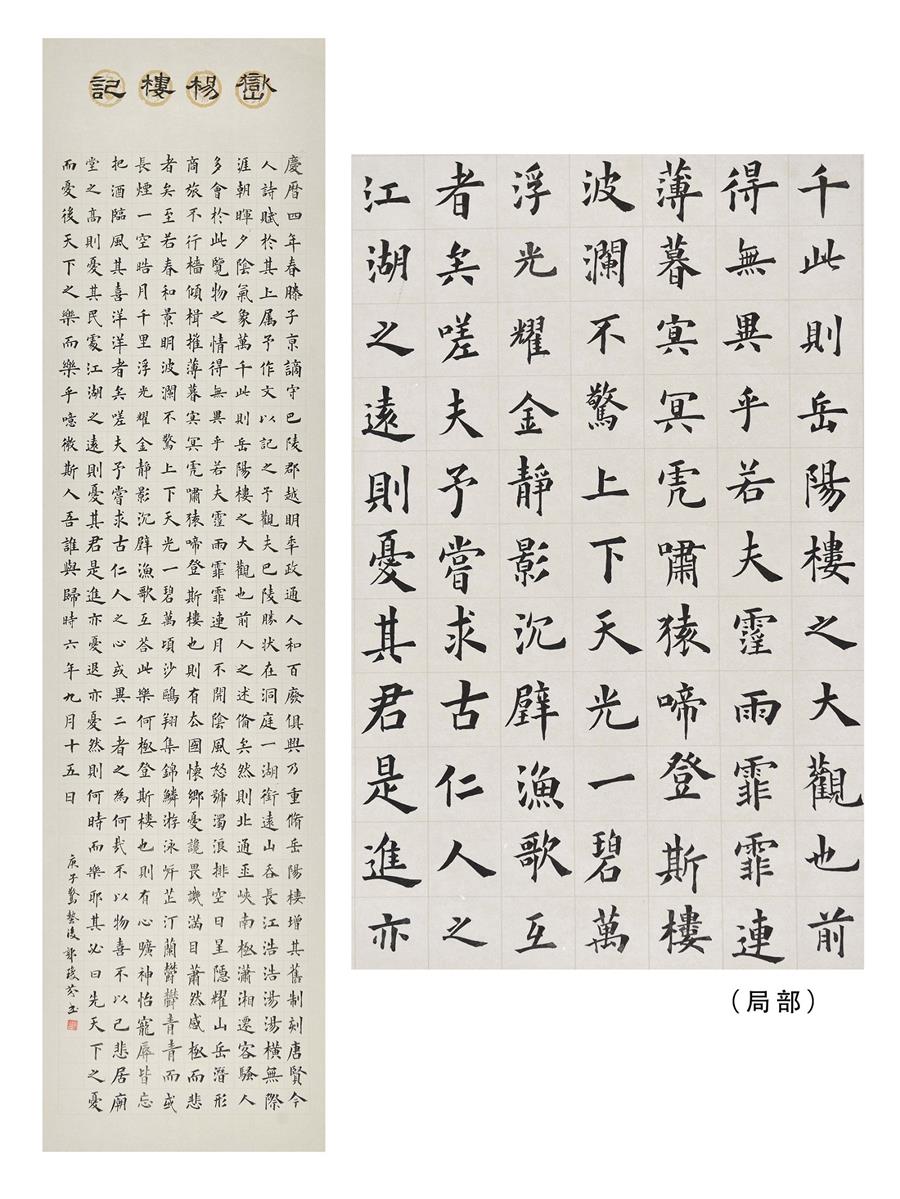 嶽楊樓記
慶曆四年春滕子京謫守巴陵郡越明年政通人和百廢俱興乃重脩岳陽樓增其舊制刻唐賢今
人詩賦於其上属予作文以記之予觀夫巴陵勝狀在洞庭一湖銜遠山吞長江浩浩湯湯橫無際
涯朝暉夕陰氣象萬千此則岳陽樓之大觀也前人之述備矣然則北通巫峽南極瀟湘遷客騷人
多會於此覽物之情得無異乎若夫霪雨霏霏連月不開陰風怒號濁浪排空日星隱耀山岳潛形
商旅不行檣傾楫摧薄暮冥冥虎嘯猿啼登斯樓也則有去國懷鄉憂讒畏譏滿目蕭然感極而悲
者矣至若春和景明波瀾不驚上下天光一碧萬頃沙鷗翔集錦鱗游泳岸芷汀蘭鬱鬱青青而或
長煙一空皓月千里浮光耀金靜影沉璧漁歌互答此樂何極登斯樓也則有心曠神怡寵辱皆忘
把酒臨風其喜洋洋者矣嗟夫予嘗求古仁人之心或異二者之為何哉不以物喜不以己悲居廟
堂之高則憂其民處江湖之遠則憂其君是進亦憂退亦憂然則何時而樂耶其必曰先天下之憂
而憂後天下之樂而樂乎噫微斯人吾誰與歸時六年九月十五日
庚子驚蟄後
千此則岳陽樓之大觀也前
得無異乎若夫霪雨霏霏連
薄暮冥冥虎嘯猿啼登斯樓
波瀾不驚上下天光一碧萬
浮光耀金靜影沉璧漁歌互
者矣嗟夫予嘗求古仁人之
江湖之遠則憂其君是進亦
（局部）